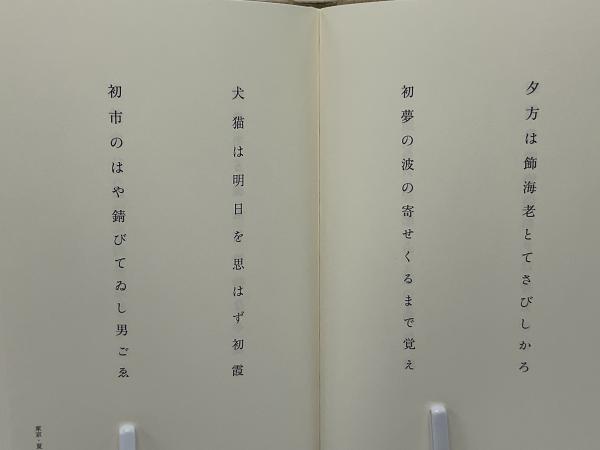 夕方は飾海老とてさびしかろ
初夢の波の寄せくるまで覚え
犬猫は明日を思はず初霞
初市のはや錆びてゐし男ごゑ
東京・夏